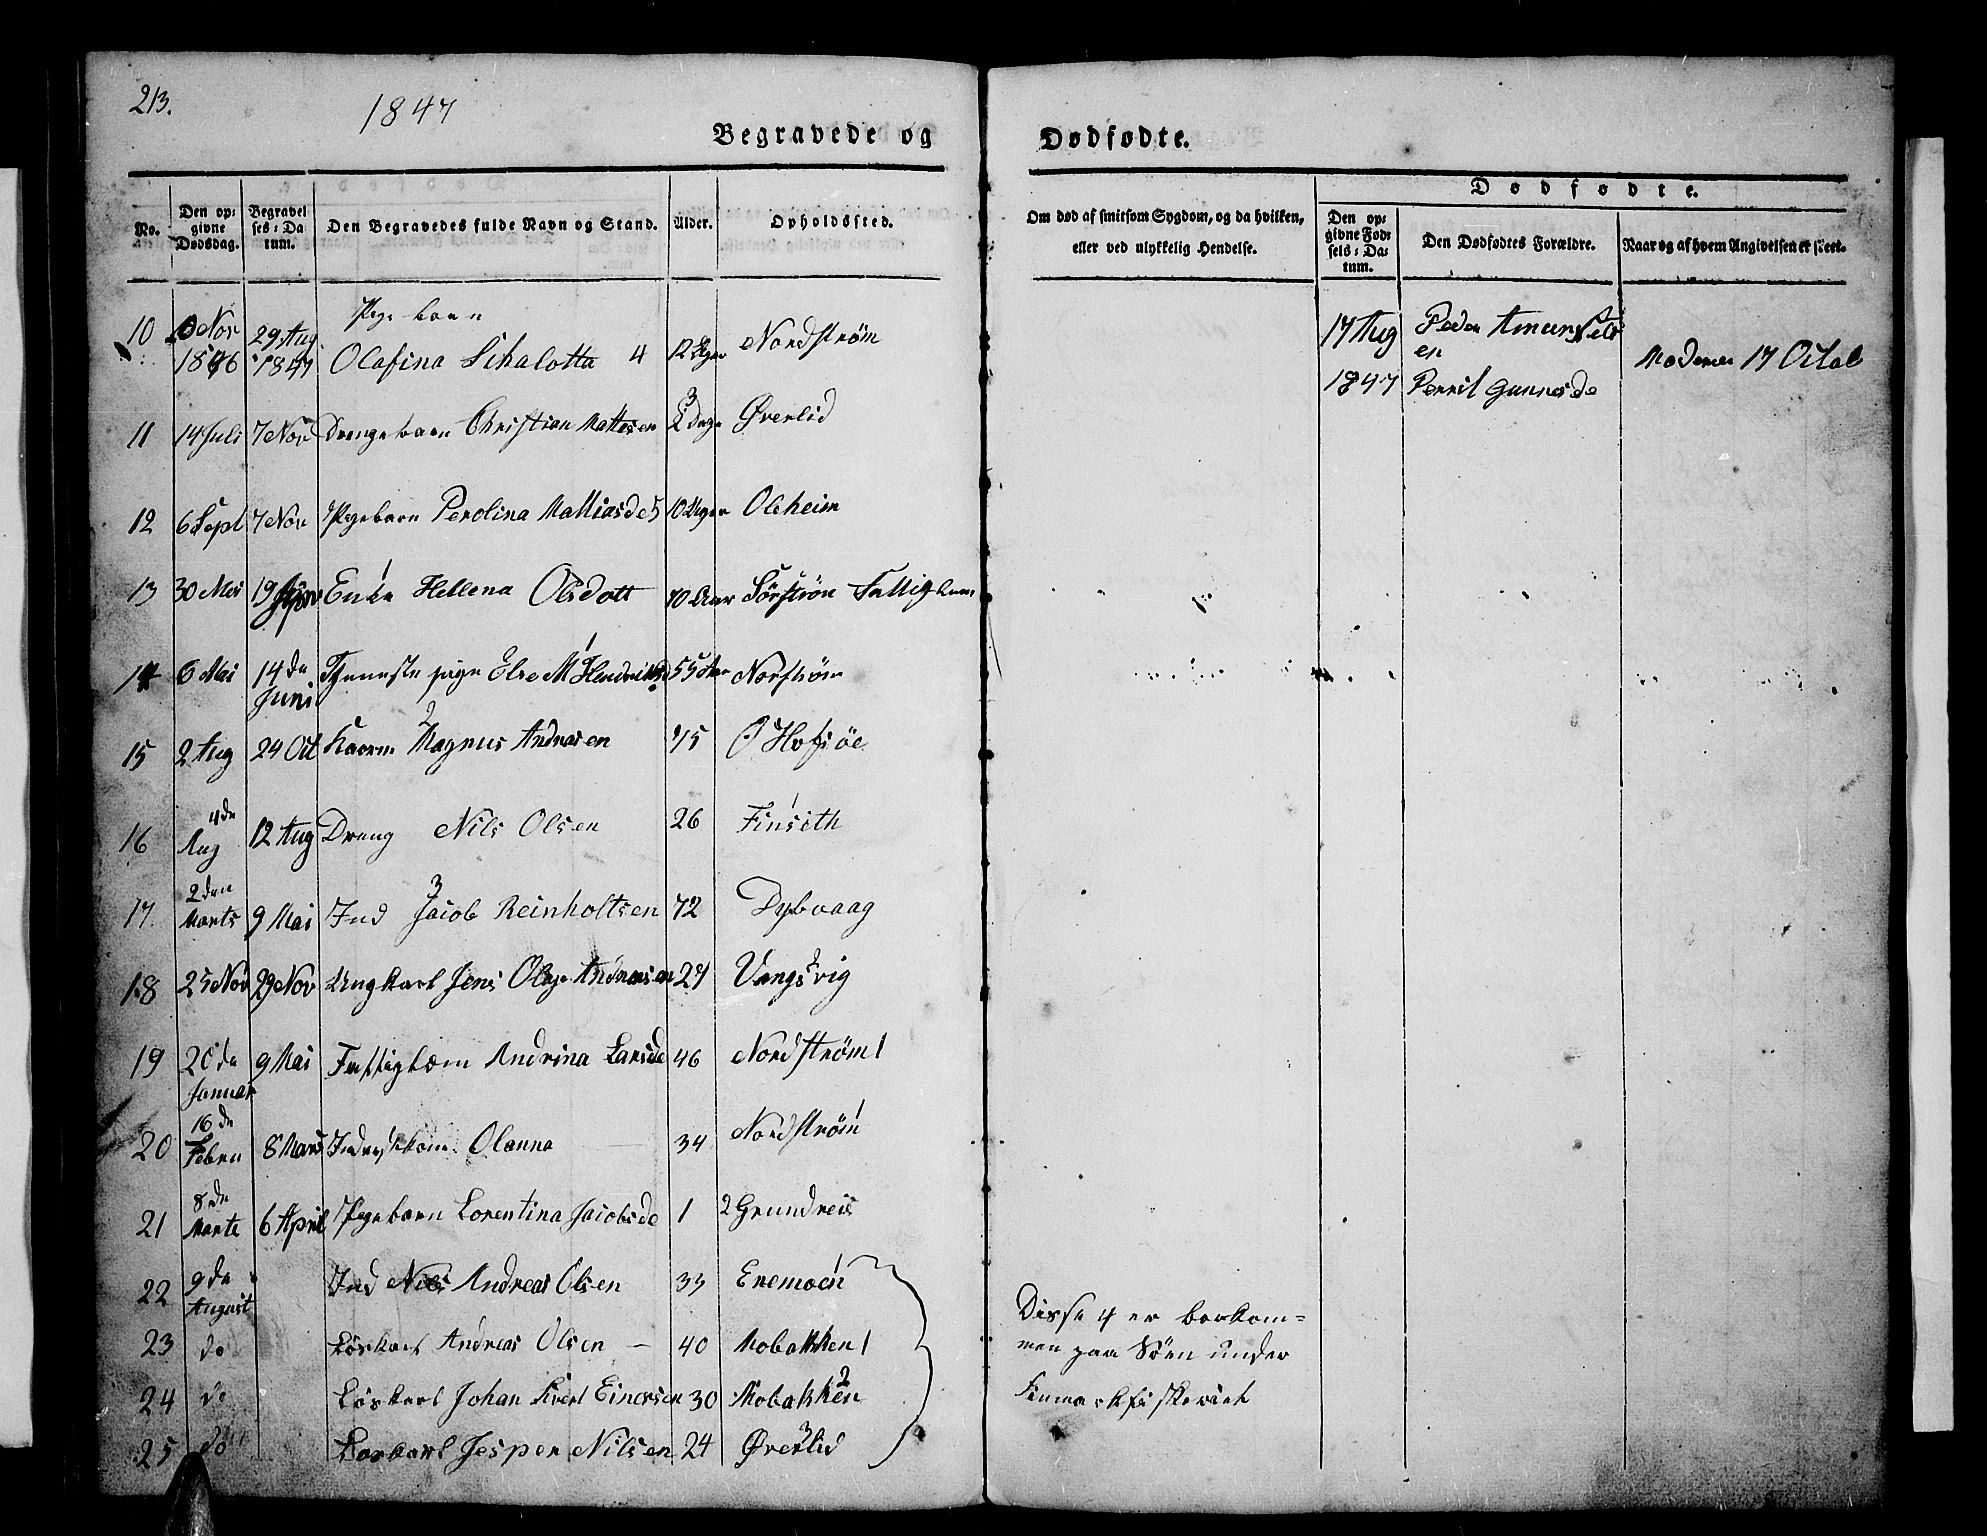 213.
1847
Begravede og
Dødfødte.
No.
Den op: givne Dødsdag.
Begravel ses: Da tum.
Den Begravedes fulde Navn og Stand.
Alder.
Opholdssted.
Om død af smitsom Sygdom, og da hvilken, eller ved ulykkelig Hendelse.
Dødfødte.
Den op: givne Fød: sels: Da: tum.
Den Dødfødtes Forældre.
Naar og af hvem Angivelsen er skeet.
Pigebarn
10 Nov 1846 29 Aug 1847 Olafina Schalotta 4 12 Uger Nordstrøm
17 Aug 1847
Peder Amundsen
Pernil Gunnersde
Moderen 17 Octob
11 14 Juli 7 Nov Drengebarn Christian Mattisen Dage Øverlid
12 6 Sept 7 Nov Pigebarn Perolina Mattiasde 5 10 Uger Oleheim
13 30 Mai 19 Enke Hellena Olsdatt 70 Aar Sørstrøm Fattiglem
14 6 Mai 14de Juni Tjenestepige Else M Hendriksd 55 Aar Norstrøm
15 2 Aug 24 Oct Kaarm Magnus Andreasen 75 Hofsøe
16 4de Aug 12 Aug Dreng Nils Olsen 26 Finseth
17 2den Marts 9 Mai Ind Jacob Reinholtsen 72 Dybvaag
18 25 Nov 29 Nov Ungkarl Jens Olaje Andreasen 27 Vangsvig
19 20de Januar 9 Mai Fattiglæm Andrina Larsde 46 Nordstrøm 1
20 16de Febru 8 Mars Inderstkone Olanna — 34 Nordstrøm
21 8de Marts 6 April Pigebarn Lorentina Jacobsde 1 2 Grundreis
22 9de August Ind Nils Andreas Olsen 33 Enemoen
23 do Løskarl Andreas Olsen — 40 Mobakken 1
24 do Løskarl Johan Sivert Einersen 30 Mobakken 2
25 do Løskarl Jesper Nilsen 24 Øverlid 3
Disse 4 er borkom=
men paa Søen under
Finmarkfiskeriet